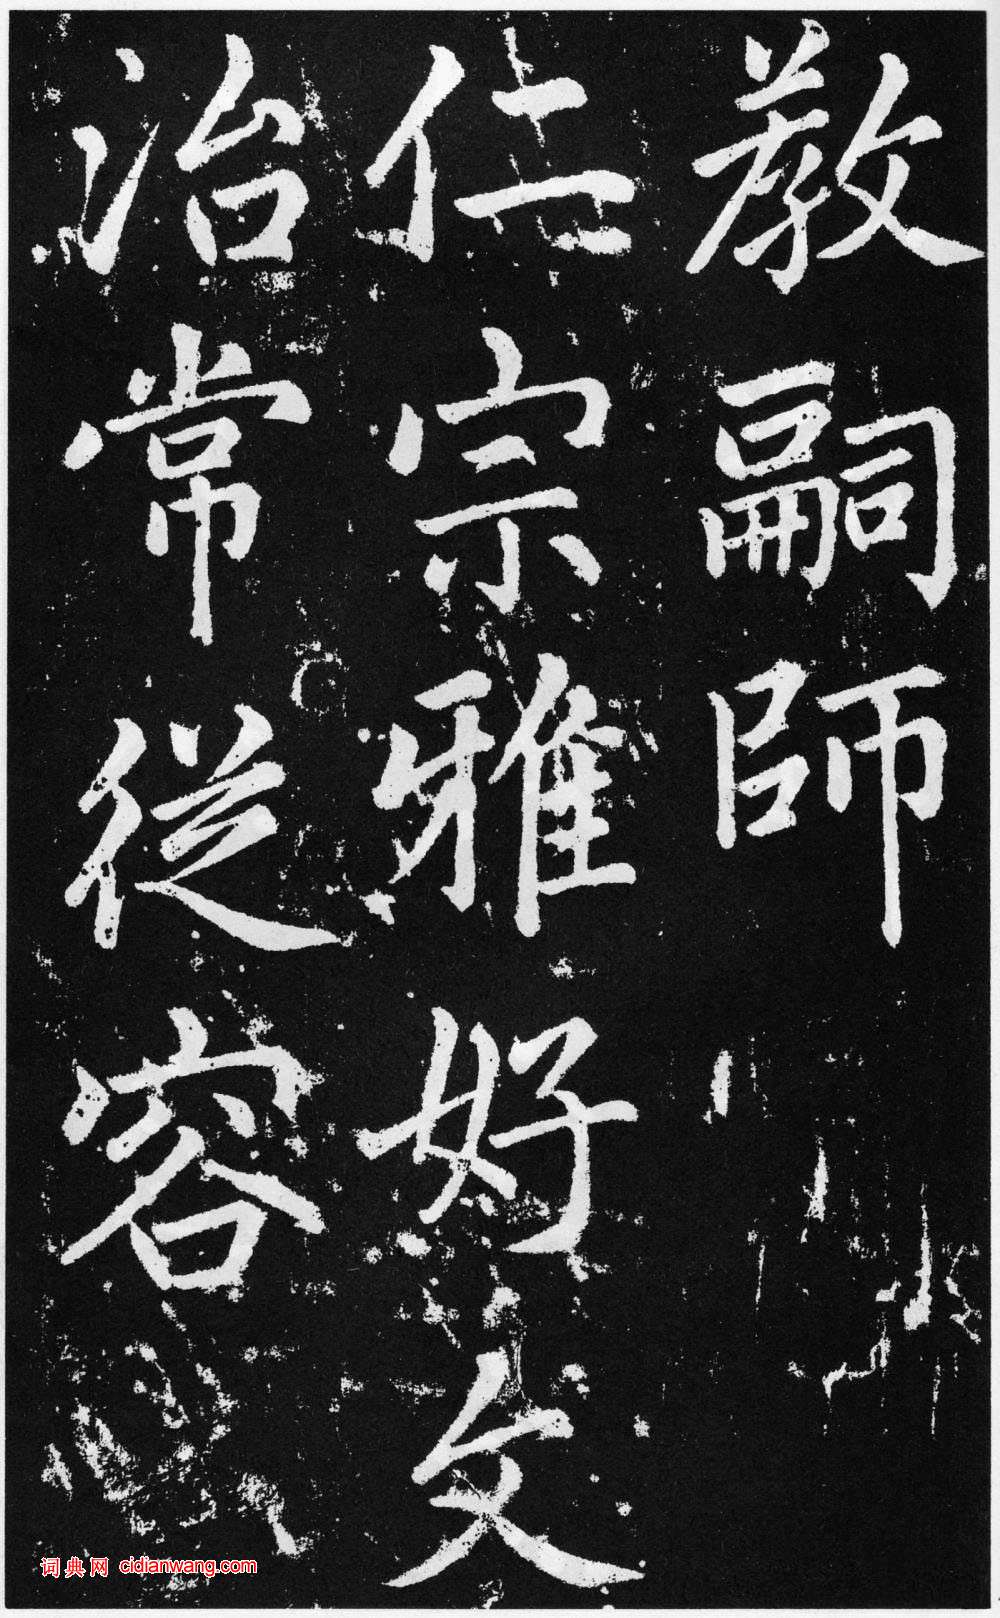 教嗣師
仁宗雅好文
治常從容
词典网 cidianwang.com